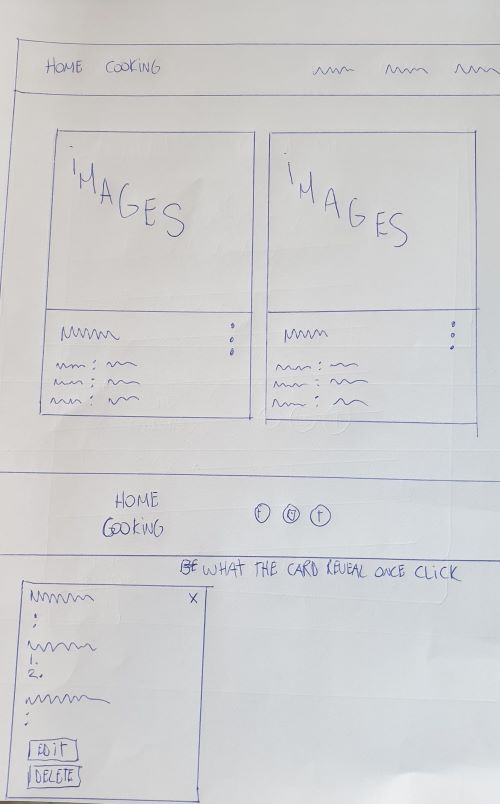 HOME COOKING
iMAGES
iMAGES
HOME
COOKING
F
T
WHAT THE CARD REVEAL ONCE CLICK
X
:
1.
2.
:
EDIT
DELETE